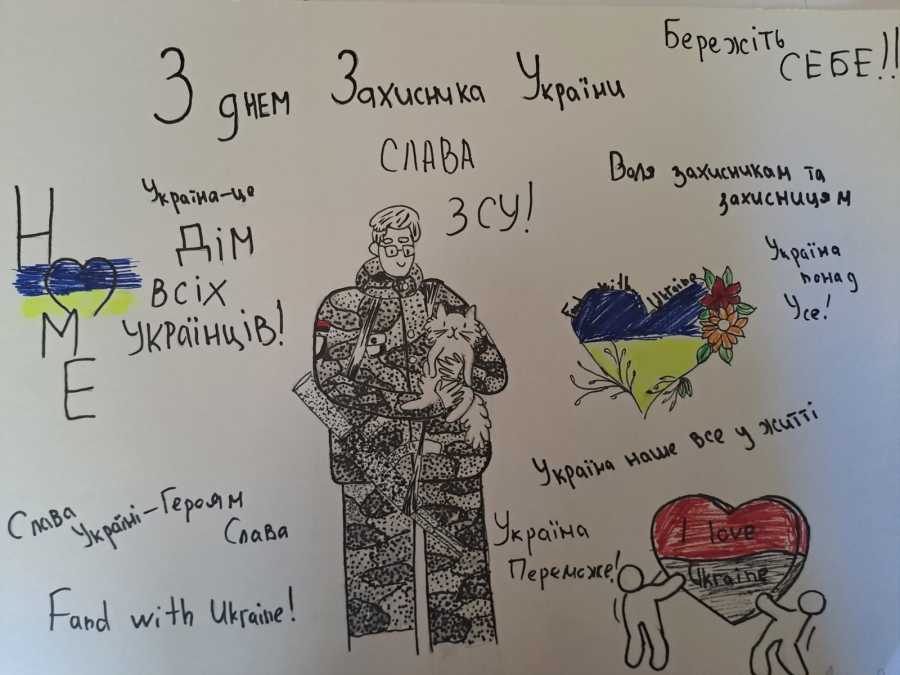 Бережіть
СЕБЕ!!
З днем Захисника України
СЛАВА
ЗСУ!
H
M
E
Україна-це
ДІМ
ВСІХ
УКРАЇНЦІВ!
Воля захисникам та
захисницям
with Ukraine
Україна
понад
Усе!
Україна наше все у житті
Слава
Україні-Героям
Слава
Fand with Ukraine!
Україна
Переможе!
I love
Ukraine